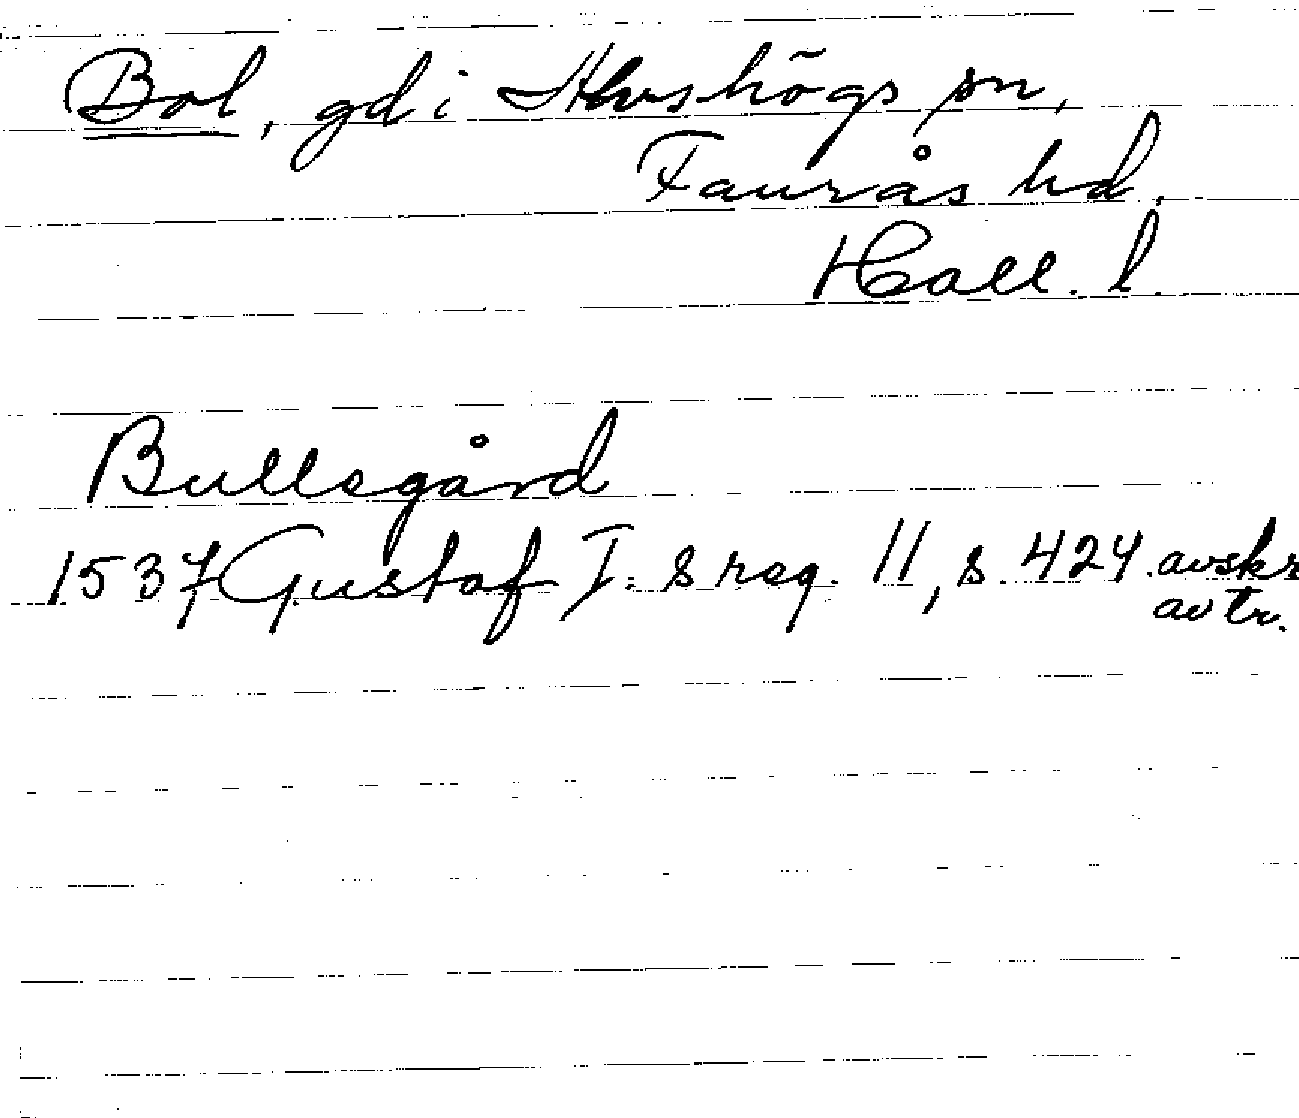 Bol, gd i Alvshögs sn,
Faurås hd.
Hall. l.
Bullsgård
1537 Gustaf I:s reg. 11, s. 424. avskr
av tr.